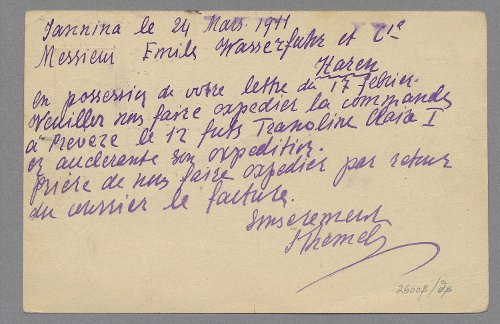 Jannina le 24 Mars 1911
Messieur Emile Wasserfuhr et Cie
Haren
en possession de votre lettre du 17 fevrier.
Veuillez nous faire expedier la commande
a Preveze le 12 futs Tranoline Claire I
et accelerante son expedition.
prière de nous faire expedier par retour
du courrier le facture.
Sinserement
2600B/